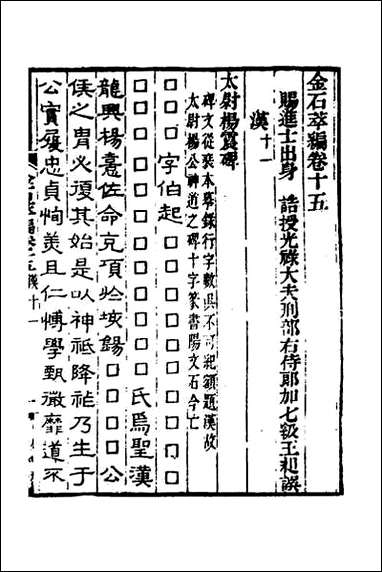 金石萃編卷十五
賜進士出身　誥授光祿大夫刑部右侍郎加七級王昶譔
漢十一
太尉楊震碑
碑文從裴本摹錄行字數俱不可紀額題漢故
太尉楊公神道之碑十字篆書陽文石今亡
□□□字伯起□□□□□□□□□
□□□□□□□□□□□氏焉聖漢
龍興楊憙佐命克項於垓鍚□□□□公
侯之冑必復其始是以神祗降祉乃生于
公實履忠貞恂美且仁博學甄微靡道不